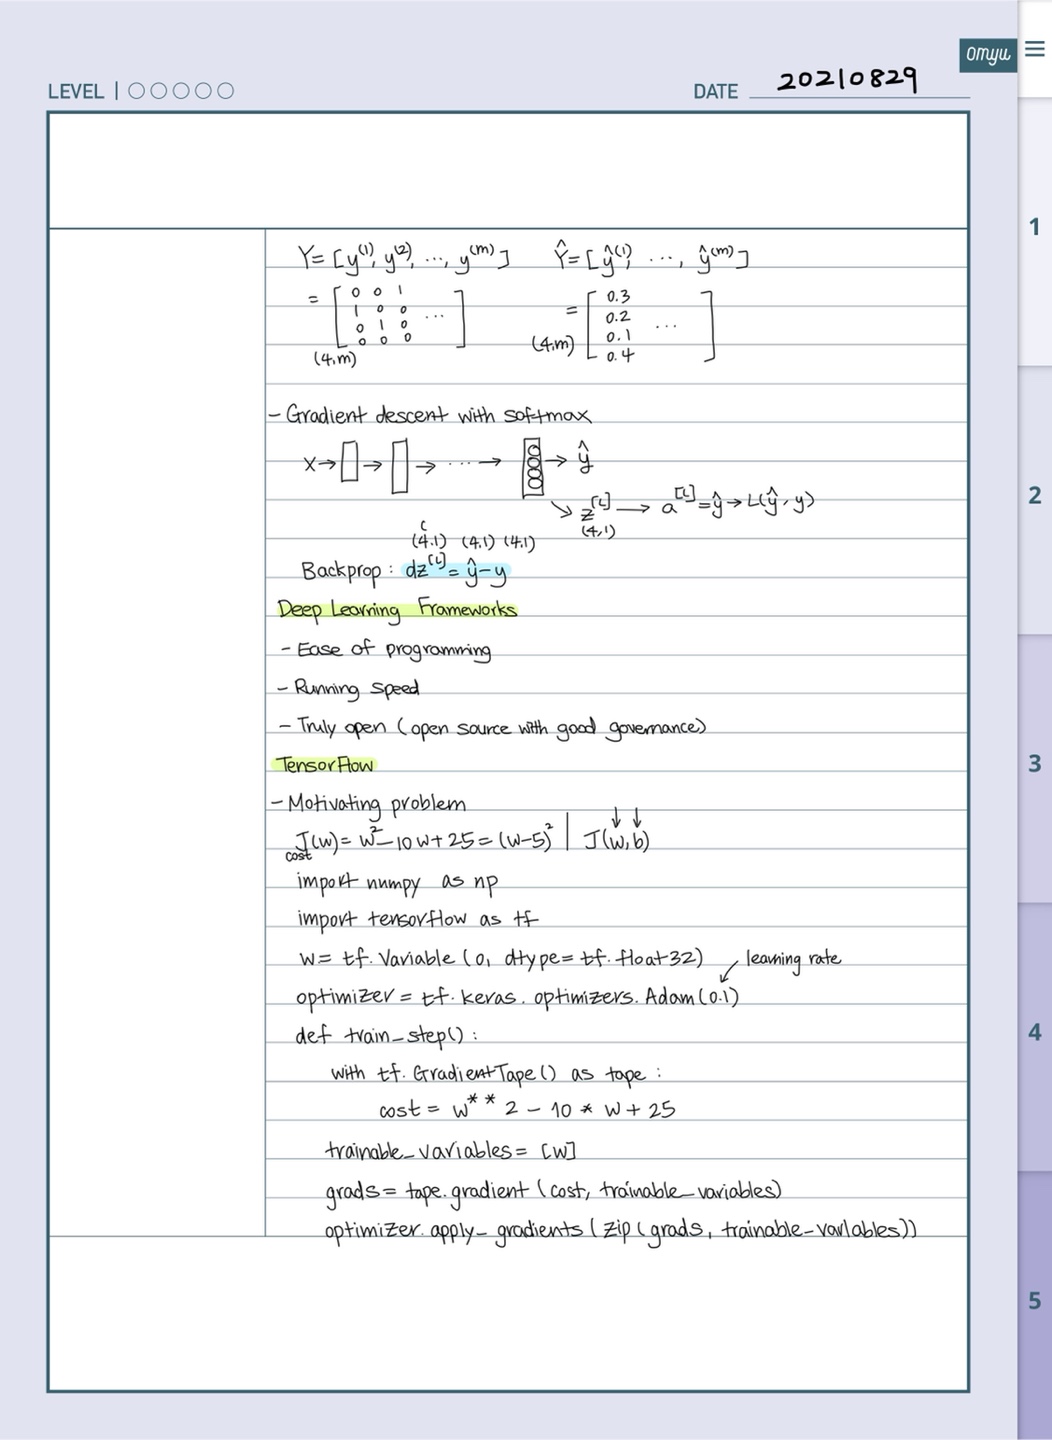 omyu
LEVEL | ○○○○○
DATE 20210829
Y = [y^(1), y^(2), ..., y^(m)]   Ŷ = [ŷ^(1), ..., ŷ^(m)]
= [ 0 0 1   = [ 0.3
1 0 0 ...   0.2
0 1 0   0.1 ...
0 0 0 ]   0.4 ]
(4,m)   (4,m)
- Gradient descent with softmax
X → → ... → → ŷ
↘ z^[L] → a^[L] = ŷ → L(ŷ, y)
(4,1)
C
(4,1) (4,1) (4,1)
Backprop : dz^[L] = ŷ - y
Deep Learning Frameworks
- Ease of programming
- Running speed
- Truly open (open source with good governance)
TensorFlow
- Motivating problem
J(w) = w² - 10w + 25 = (w-5)² | J(w,b)
cost
import numpy as np
import tensorflow as tf
w = tf.Variable(0, dtype = tf.float32)
learning rate
optimizer = tf.keras.optimizers.Adam(0.1)
def train_step():
with tf.GradientTape() as tape :
cost = w ** 2 - 10 * w + 25
trainable_variables = [w]
grads = tape.gradient(cost, trainable_variables)
optimizer.apply_gradients(zip(grads, trainable_variables))
1
2
3
4
5